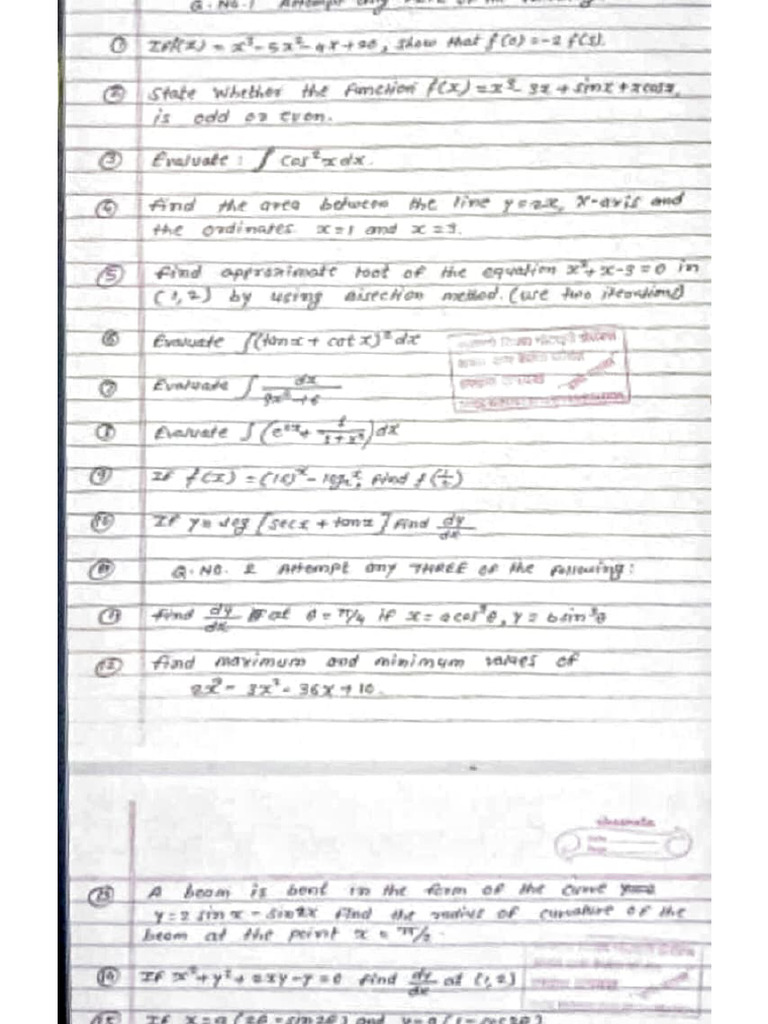 Q. No. 1 Attempt any
① If f(x) = x³-5x²-4x+20, show that f(0) = -2 f(3).
② State whether the function f(x) = x³- 3x + sinx + xcosx,
is odd or even.
③ Evaluate : ∫ cos²x dx.
④ find the area between the line y = 2x, x-axis and
the ordinates x=1 and x=3.
⑤ find approximate root of the equation x²+x-3=0 in
(1,2) by using bisection method. (use two iterations)
⑥ Evaluate ∫(tanx + cotx)² dx
⑦ Evaluate ∫ dx / 9x²+6
⑧ Evaluate ∫ ( + 1 / 1+x²) dx
⑨ If f(x) = find f
⑩ If y = log [secx + tanx] find dy/dx
Q. NO. 2 Attempt any THREE of the following:
⑪ find dy/dx at θ = π/4 if x = a cos³θ, y = b sin³θ
⑫ find maximum and minimum values of
2x³- 3x²- 36x + 10.
classmate
Date
Page
⑬ A beam is bent in the form of the curve
y = 2 sin x - sin2x find the radius of curvature of the
beam at the point x = π/2.
⑭ If x²+y²+2xy-y=0 find dy/dx at (1,2)
⑮ If x = a(2θ - sin2θ) and y = a(1-cos2θ)